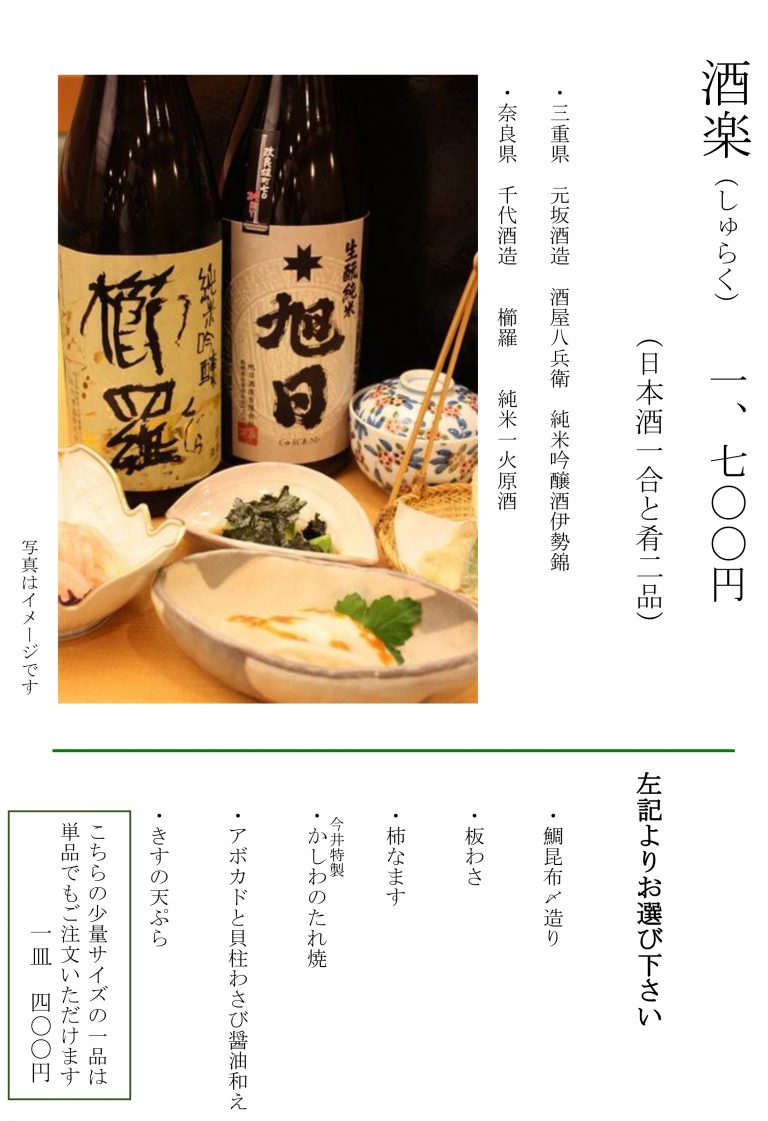 酒楽(しゅらく) 一、七〇〇円
(日本酒一合と肴二品)
・三重県 元坂酒造 酒屋八兵衛 純米吟醸酒伊勢錦
・奈良県 千代酒造 櫛羅 純米一火原酒
純米吟醸
櫛羅
くじら
生酛純米
旭日
じゅうじあさひ
写真はイメージです
左記よりお選び下さい
・鯛昆布〆造り
・板わさ
・柿なます
今井特製
・かしわのたれ焼
・アボカドと貝柱わさび醤油和え
・きすの天ぷら
こちらの少量サイズの一品は
単品でもご注文いただけます
一皿 四〇〇円